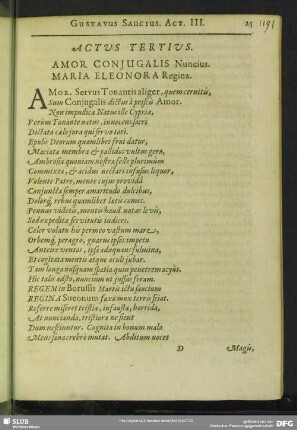 GUSTAVUS SAUCIUS. ACT. III. 25
1191
ACTUS TERTIUS.
AMOR CONJUGALIS Nuncius.
MARIA ELEONORA Regina.
AMOR. Servus Tonantis aliger, quem cernitis,
Sum Conjugalis dictus à priscis Amor.
Non impudica Natus ille Cypriæ,
Verùm Tonante natus, innocens sacri
Dictata calo jura qui servo tori.
Epulis Deorum quamlibet fruor datur,
Maciata membra & pallidos vultus gero,
Ambrosia quoniam nostra felle plurimùm
Commixta, & acidus nectari infusus liquor,
Volente Patre, mente cujus provida
Conjuncta semper amaritudo dulcibus,
Dolorq, rebus quamlibet latis comes.
Pennæ volatis, mentis haud nota levis,
Sed expedita servitutis indices.
Celer volatu his permeo vastum mare,
Orbemq, peragro, gnarus ipsos impetu
Anteire ventos, ipsa adæquens fulmina,
Et cogitata mentis atque oculi jubar.
Tam longa nusquam spatia quin penetrem acyùs.
Hic talis adsto, nuncium ut jussus feram.
REGEM in Borussis Martis ictu saucium
REGINA Sueonum faxo mox terris sciat.
Referre miseret tristia, infausta, horrida,
At nuncianda, tristiora ne sient
Dum nesciuntur. Cognita in bonum mala
Mens sana crebrò mutat. Abditum nocet
D Magis,
SLUB
Wir führen Wissen.
gefördert von der
Deutschen Forschungsgemeinschaft
DFG